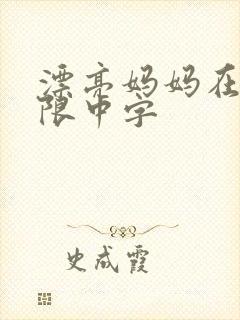 漂亮妈妈在
限中字
史成霞